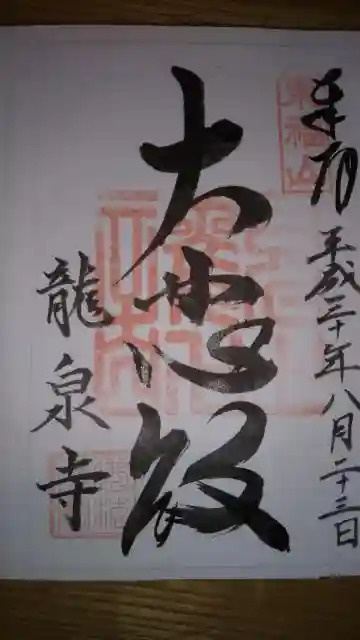 奉拝
平成三十年八月二十三日
大悲殿
龍泉寺